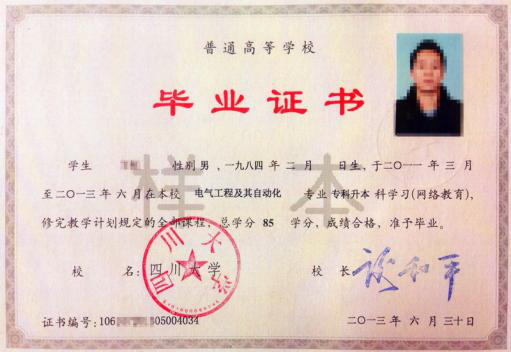 普通高等学校
毕业证书
学生 性别 男，一九八四年 二 月 日生，于二〇一一年 三 月
至二〇一三年 六 月在本校 电气工程及其自动化 专业 专科升本 科学习(网络教育)，
修完教学计划规定的全部课程，总学分 85 学分，成绩合格，准予毕业。
样本
校 名：四川大学
四川大学
校 长 谢和平
证书编号：106 505004034
二〇一三年 六 月 三十日